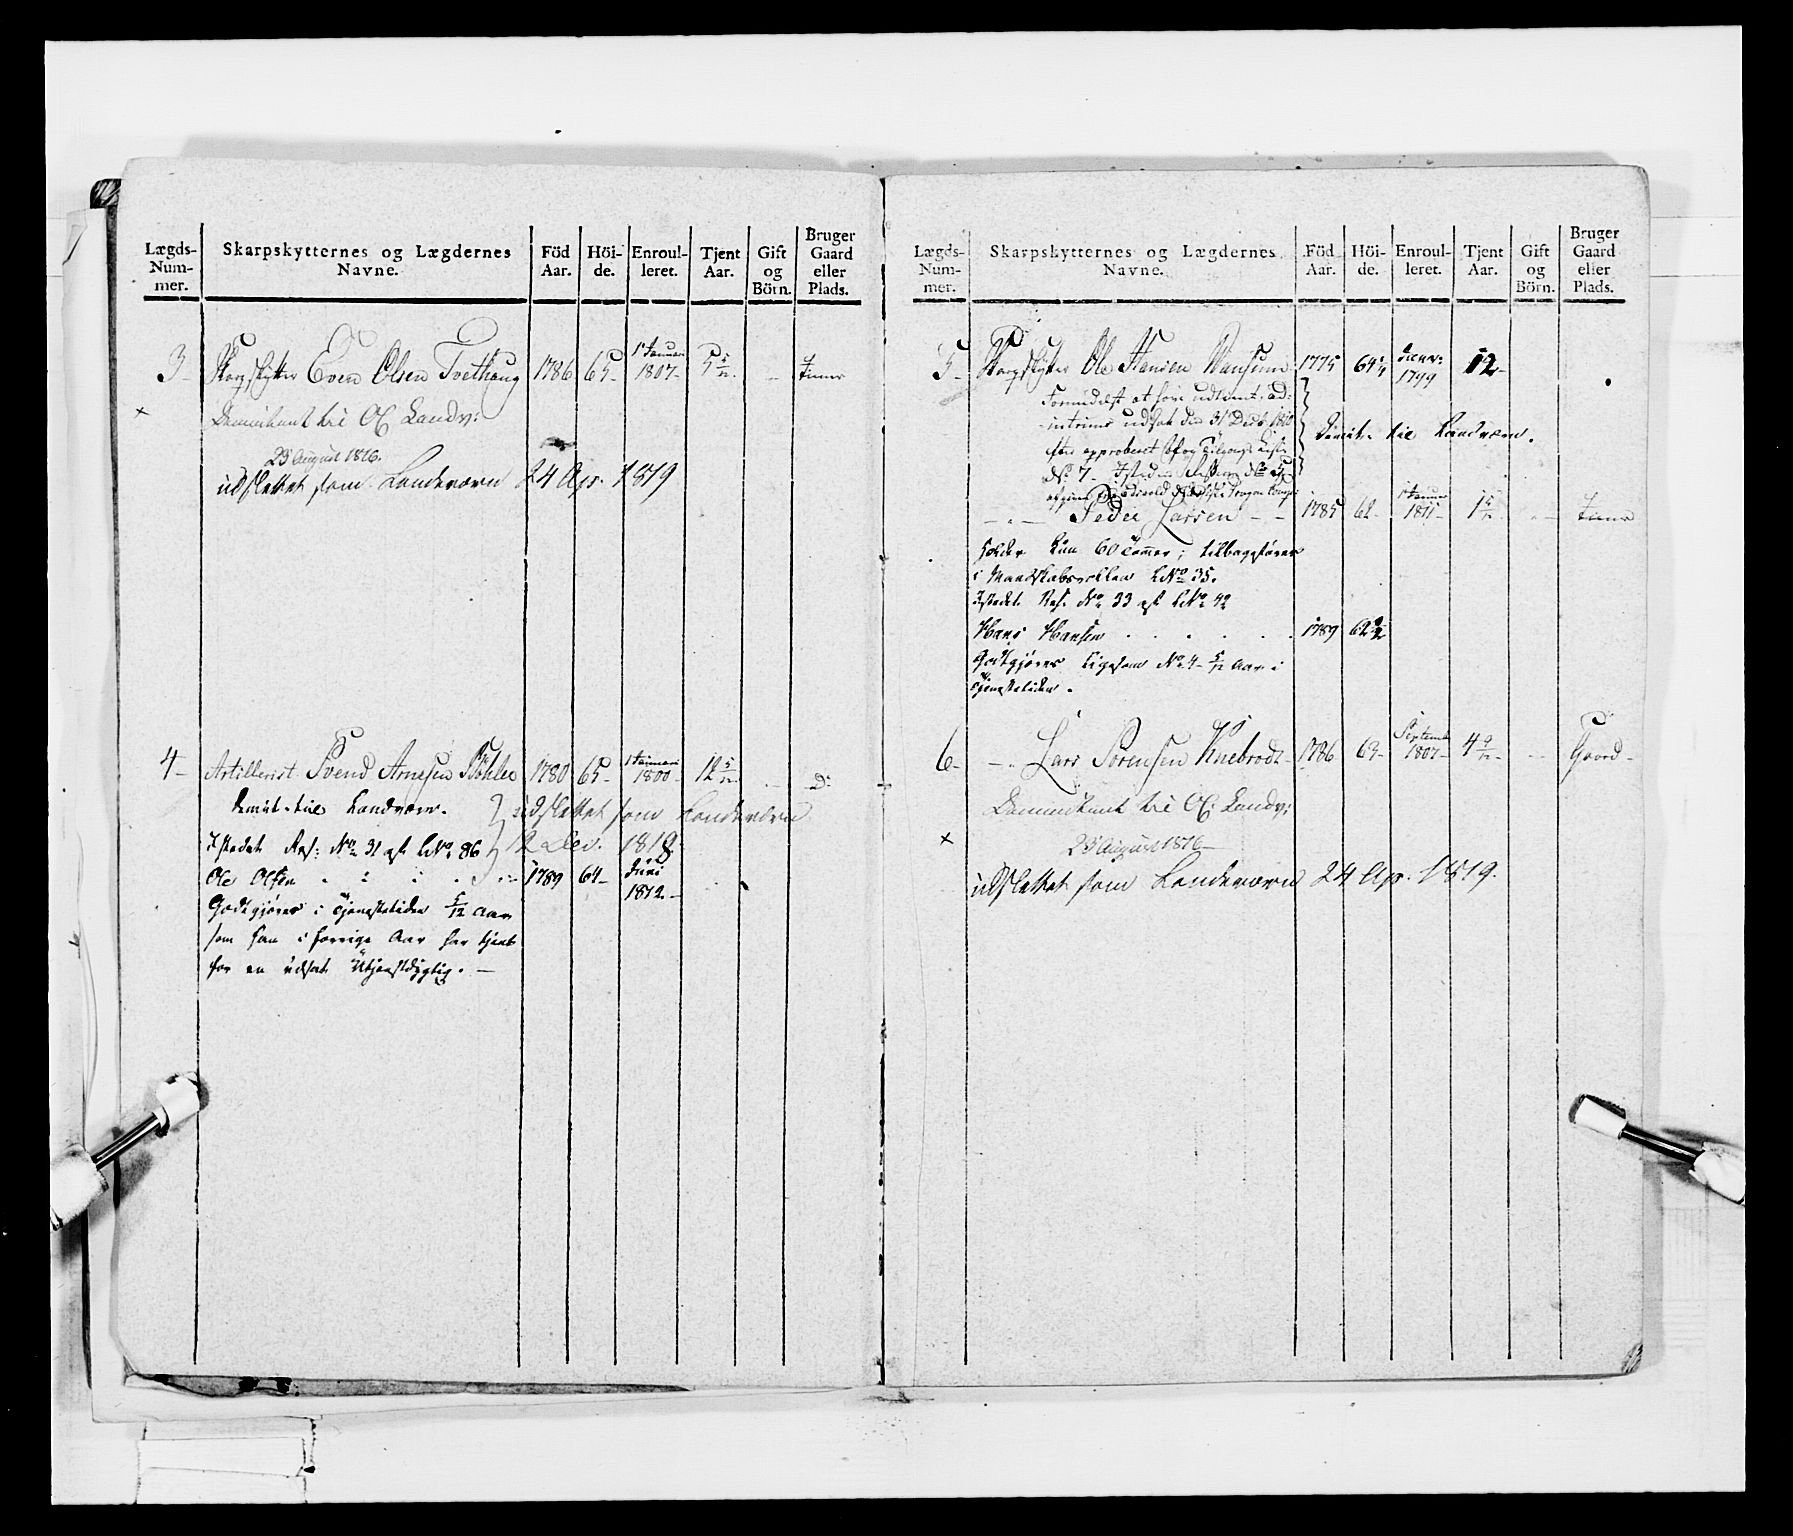 Lægds-Num-mer. Skarpskytternes og Lægdernes Navne. Föd Aar. Höi-de. Enroul-leret. Tjent Aar. Gift og Börn. Bruger Gaard eller Plads.
3 Skarpskytter Even Olsen Tvethaug 1786 65 1 Januari 1807 5 5/12 – Tiener
× Demitteret til Landv:
23 August 1816.
udslettet som Landeværn 24 Apr. 1819
4 Artillerist Svend Arnesen Böhler 1780 65 1 Januari 1800 12 5/12 – D:
Demit. til Landværn. udslettet som Landeværn
Istedet Res: No 31 af No 86 12 1818
Ole Olsen 1789 64 Juni 1812
Godtgjöres i Tjenestetiden 5/12 Aar
som han i forrige Aar har tjent
for en udsat Utjenstdygtig. –
Lægds-Num-mer. Skarpskytternes og Lægdernes Navne. Föd Aar. Höi-de. Enroul-leret. Tjent Aar. Gift og Börn. Bruger Gaard eller Plads.
5 Skarpskytter Ole Hansen 1775 64 1/4 Janr: 1799 12
Formedelst at have udtient, ad
interims udsat den 31 Decb 1810
efter approberet Af og Tilgangs Liste Demit. til Landværn.
No 7 Istedet
– " – Peder Larsen – – 1785 62 1 Januar 1811 1 5/12 – Tiener
holder kun 60 Tommer; tilbageføres
i Mandskabsrollen No 35.
Istedet Res. No 33 af No 42
Hans Hansen 1789 62 1/2
Godtgjöres ligesom No 4 5/12 Aar i
Tjenestetiden.
6 – " Lars Sörensen Knebrodt 1786 63 Septemb 1807 4 9/12 – Gaard
Demitteret til Landv:
× 23 August 1816
udslettet som Landeværn 24 Apr. 1819.